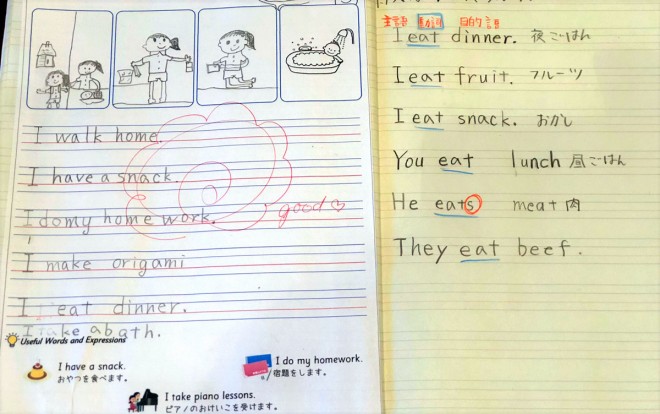 I walk home.
I have a snack
I do my home work.
good♡
I make origami
I eat dinner.
I take a bath.
Useful Words and Expressions
I have a snack.
おやつを食べます。
I do my homework.
宿題をします。
I take piano lessons.
ピアノのおけいこを受けます。
主語 動詞 目的語
I eat dinner. 夜ごはん
I eat fruit. フルーツ
I eat snack. おかし
You eat lunch 昼ごはん
He eats meat 肉
They eat beef.